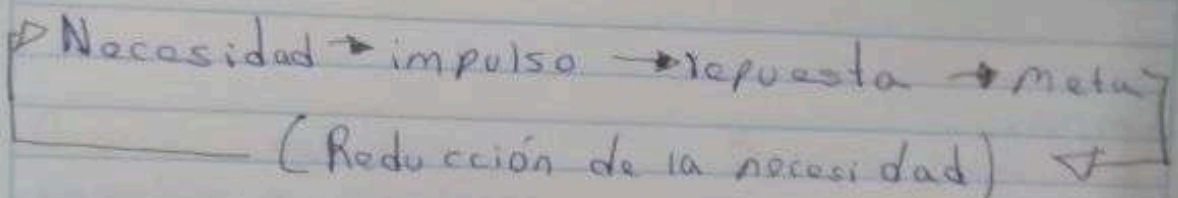 Necesidad → impulso → repuesta → meta
(Reducción de la necesidad)